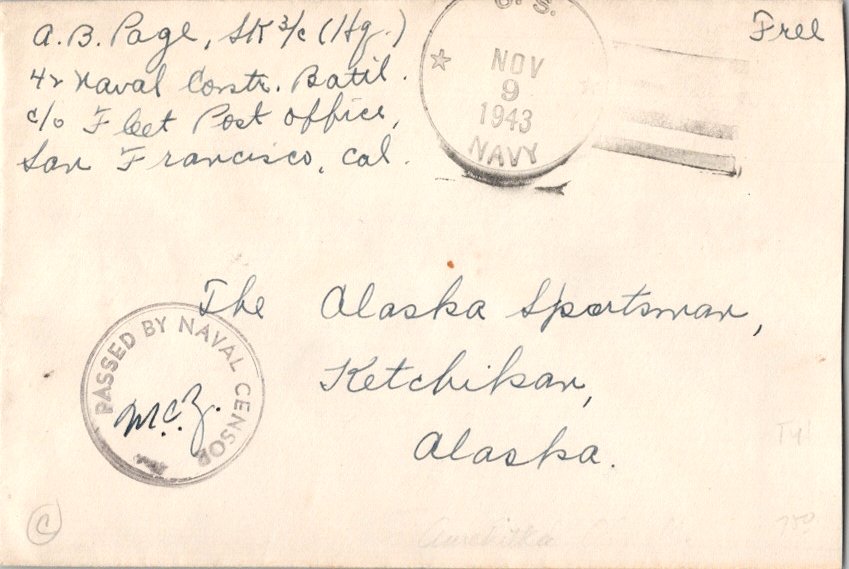 A. B. Page, SK 3/c (Hq.)
42 Naval Constr. Batil.
c/o Fleet Post Office,
San Francisco, Cal.
U. S.
NOV
9
1943
NAVY
Free
The Alaska Sportsman,
Ketchikan,
Alaska.
PASSED BY NAVAL CENSOR
C
Amchitka